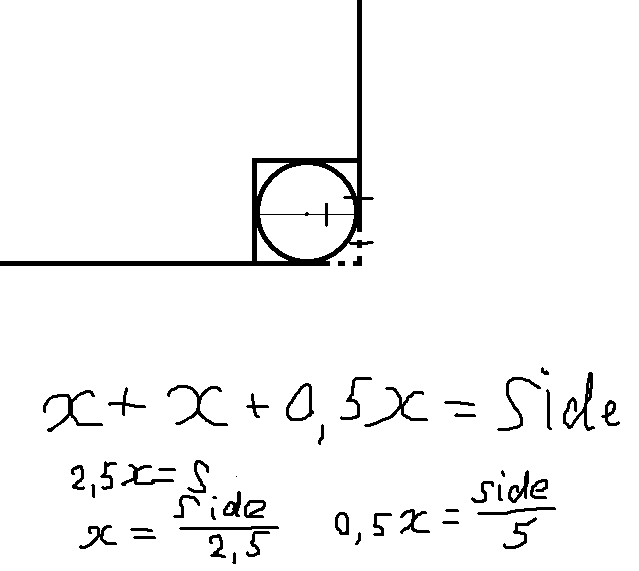 x + x + 0,5x = Side
2,5x = S
x = side/2,5
0,5x = side/5